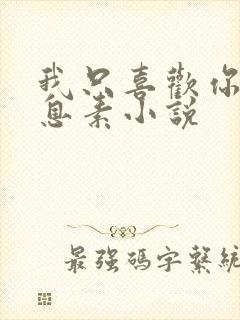 我只喜歡你
息素小說
最強碼字繫統